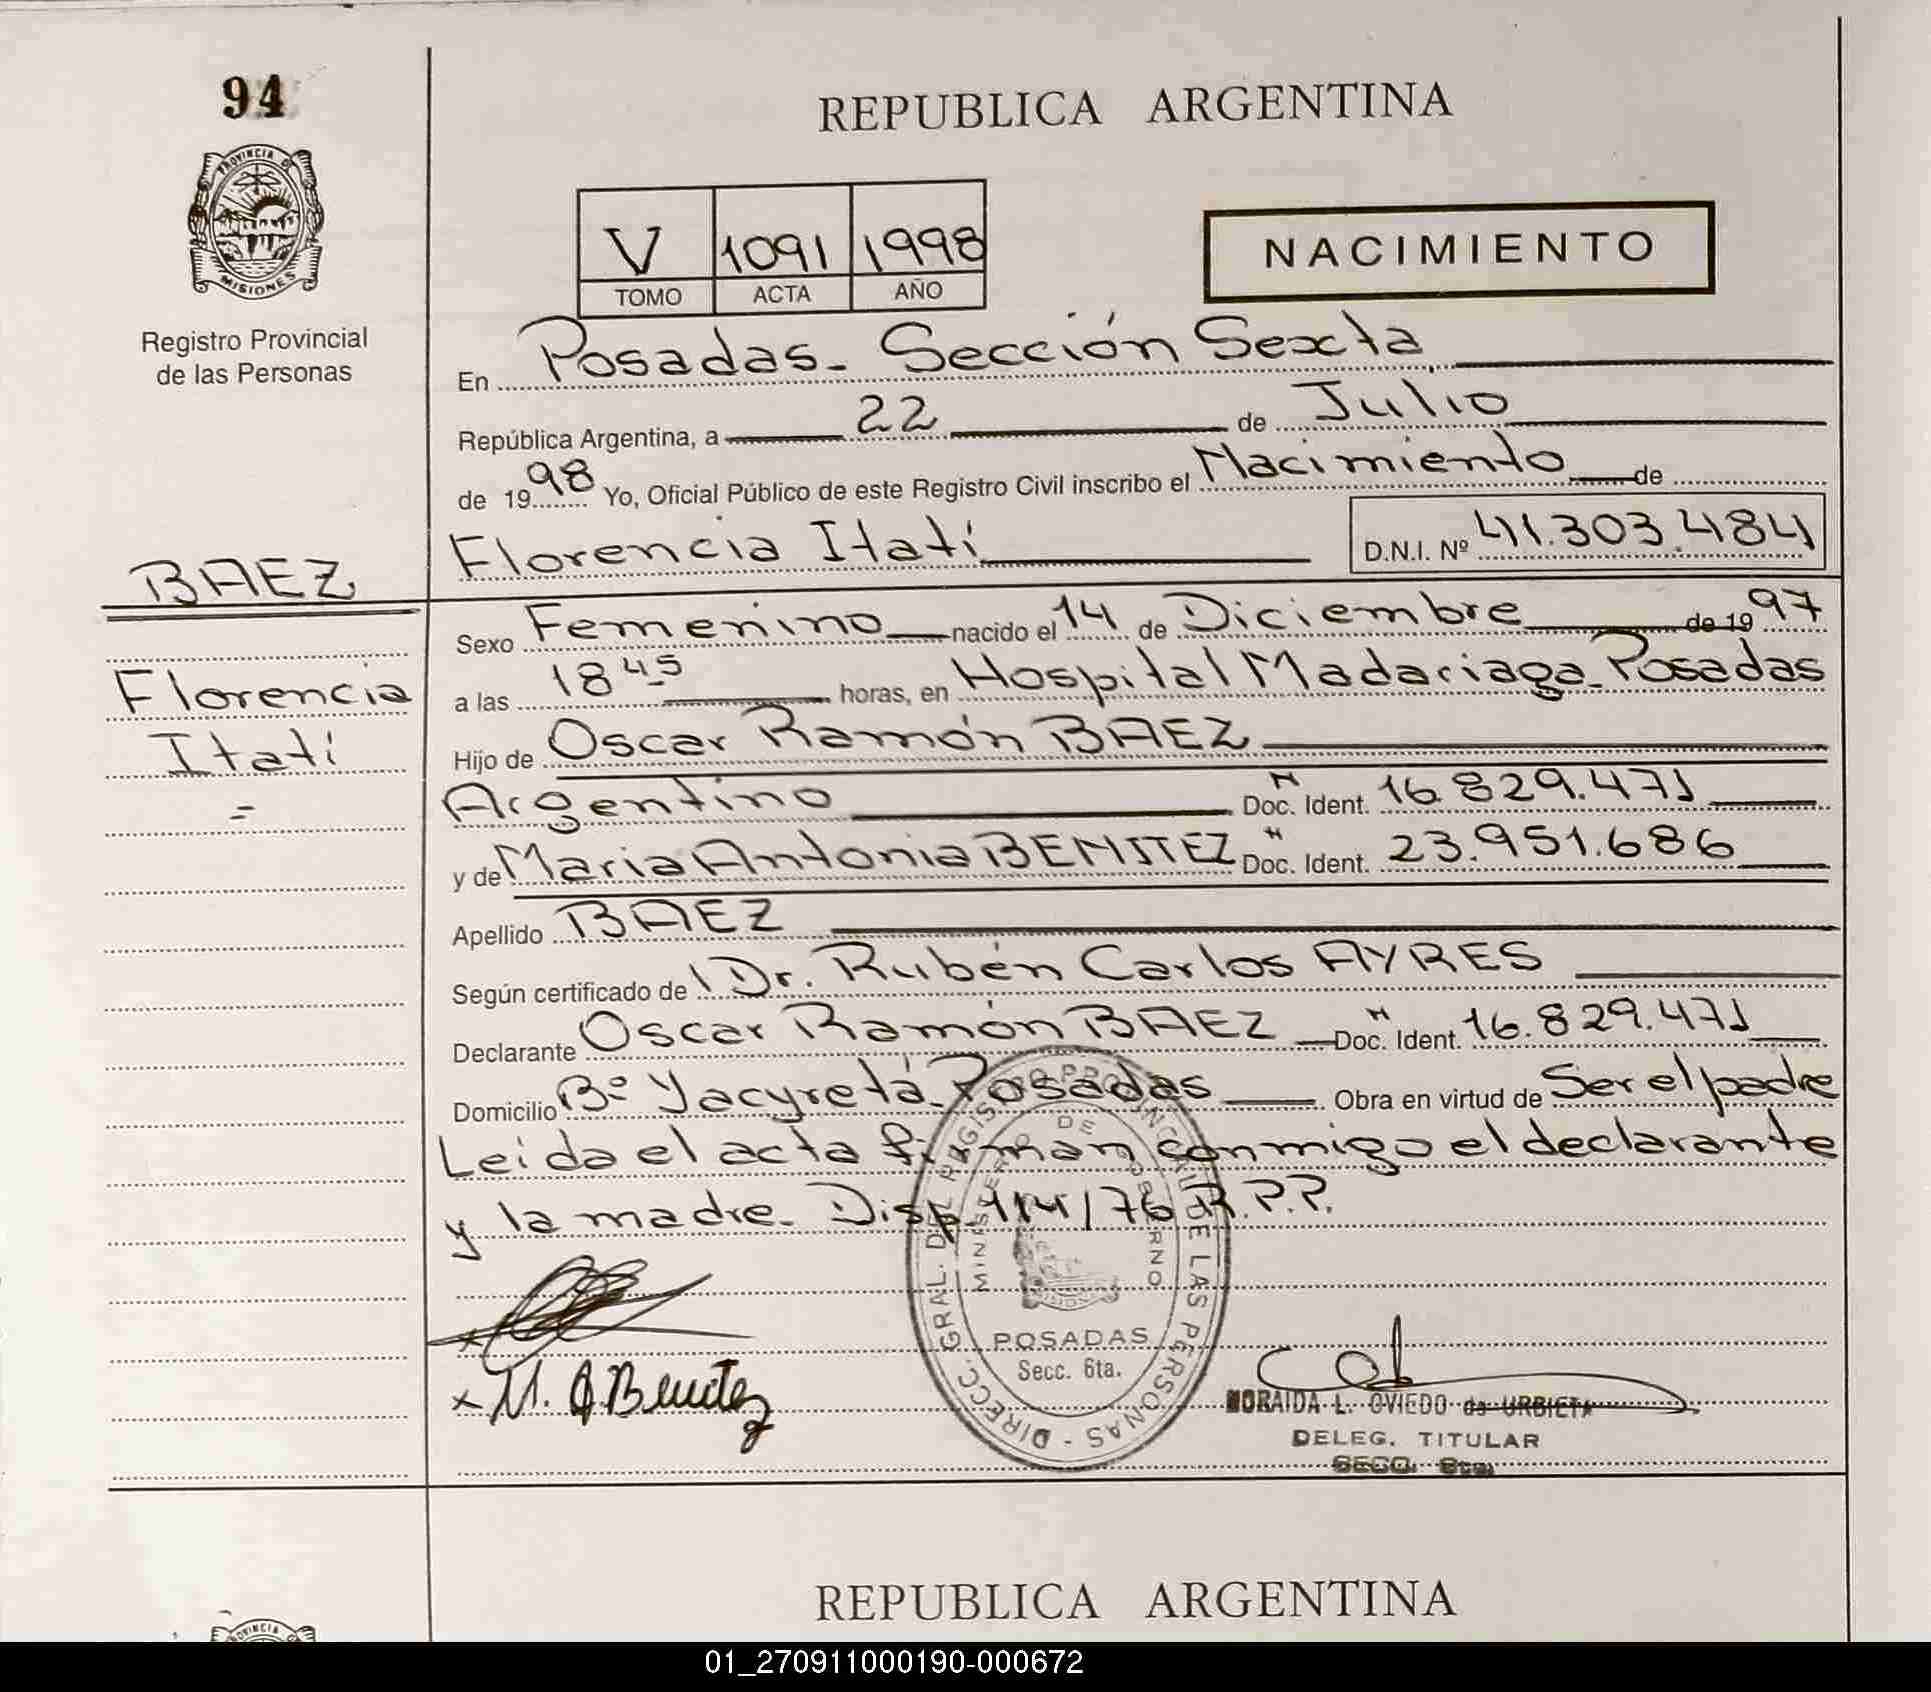 94
PROVINCIA DE
MISIONES
Registro Provincial
de las Personas
REPUBLICA ARGENTINA
V 1091 1998
TOMO ACTA AÑO
NACIMIENTO
En Posadas - Sección Sexta
República Argentina, a 22 de Julio
de 1998 Yo, Oficial Público de este Registro Civil inscribo el Nacimiento de
Florencia Itatí D.N.I. Nº 41.303.484
BAEZ
Florencia
Itatí
=
Sexo Femenino nacido el 14 de Diciembre de 1997
a las 18 45 horas, en Hospital Madariaga - Posadas
Hijo de Oscar Ramón BAEZ
Argentino Doc. Ident. N 16.829.471
y de Maria Antonia BENITEZ Doc. Ident. N 23.951.686
Apellido BAEZ
Según certificado de Dr. Rubén Carlos AYRES
Declarante Oscar Ramón BAEZ Doc. Ident. N 16.829.471
Domicilio Bº Yacyretá - Posadas Obra en virtud de Ser el padre
Leida el acta firman conmigo el declarante
y la madre - Disp. 114/76 R.P.P.
DIRECC. GRAL. DEL REGISTRO PROVINCIAL DE LAS PERSONAS -
MINISTERIO DE GOBIERNO
MISIONES
POSADAS
Secc. 6ta.
x
x M. A. Benitez
NORAIDA L. OVIEDO de URBIETA
DELEG. TITULAR
SECC. 6ta.
REPUBLICA ARGENTINA
PROVINCIA
01_270911000190-000672